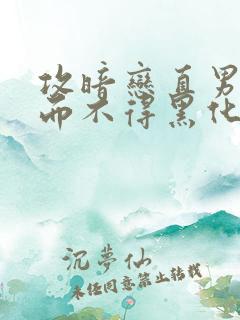 攻暗戀直男
而不得黑化
沉夢仙
未经同意禁止转载